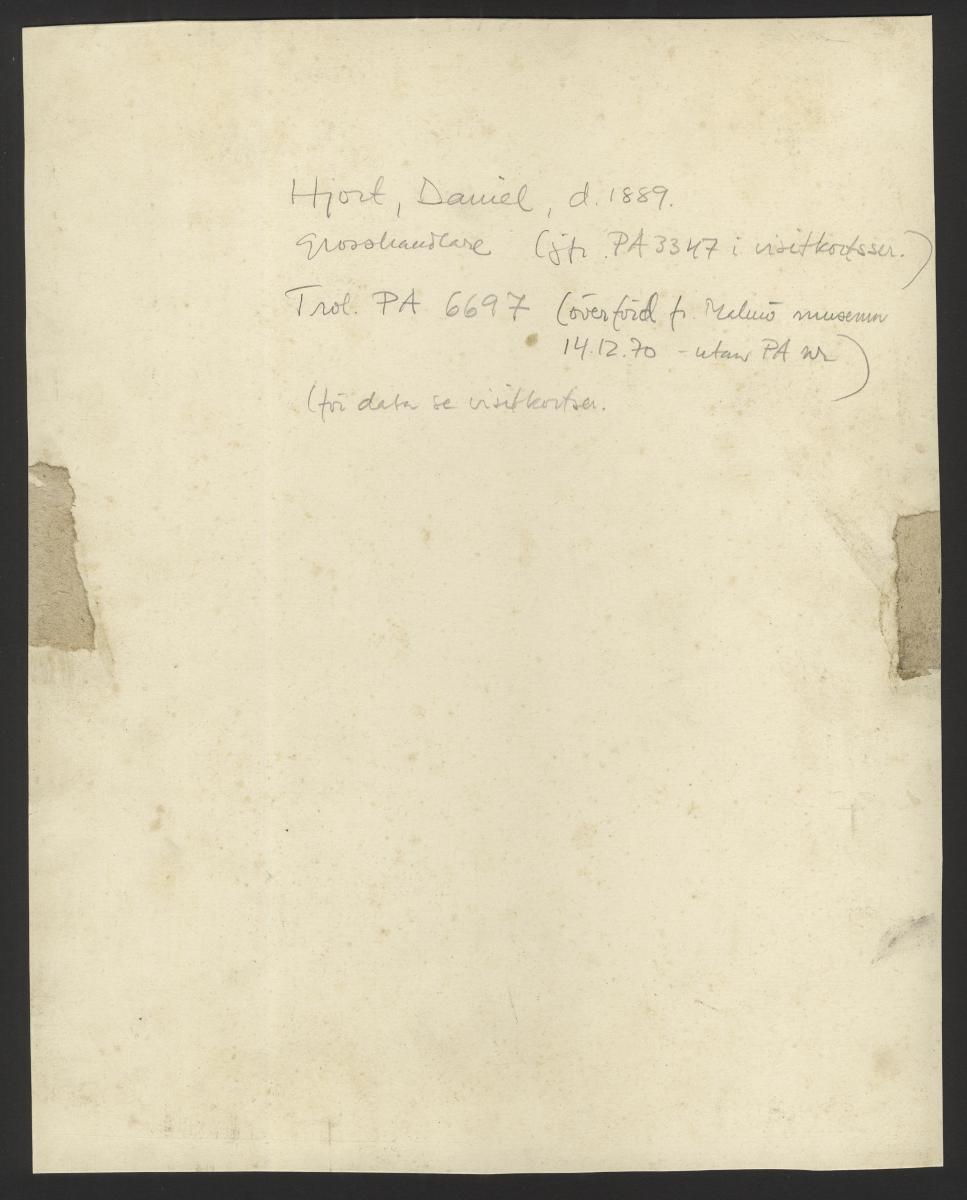 Hjort, Daniel, d. 1889.
Grosshandlare (jfr. PA 3347 i visitkortsser.)
Trol. PA 6697 (överförd fr. Malmö museum
14.12.70 - utan PA nr)
(för data se visitkortser.